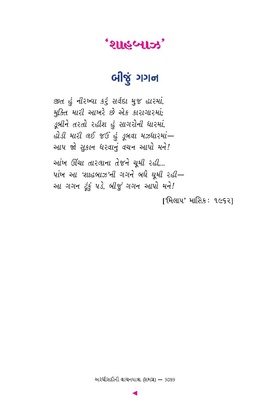 ‘શાહબાઝ’
બીજું ગગન
જીત હું નીરખ્યા કરું સર્વદા મુજ હારમાં,
મુક્તિ મારી આખરે છે એક કારાગારમાં;
ડૂબીને તરતો રહીશ હું સાગરોની ધારમાં,
હોડી મારી લઈ જઈ હું ડૂબવા મઝધારમાં—
આપ જો સુકાન ધરવાનું વચન આપો મને!
આંખ ઊંચા તારલાના તેજને ચૂમી રહી...
પાંખ આ ‘શાહબાઝ’ની ગગને બધે ઘૂમી રહી—
આ ગગન ટૂંકું પડે. બીજું ગગન આપો મને!
[‘મિલાપ’ માસિક: ૧૯૬૨]
અરધી સદીની વાચનયાત્રા